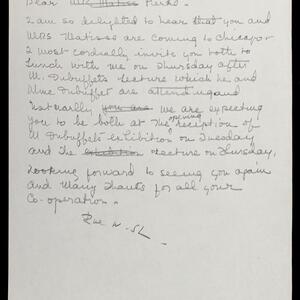 Dear Mr. Matisse Pierre.
I am so delighted to hear that you and
Mrs Matisse are coming to Chicago
I most cordially invite you both to
lunch with me on Thursday after
M. Dubuffet's lecture which he and
Mme Dubuffet are attending and
Naturally you are we are expecting
you to be both at the opening reception of
M Dubuffet's exhibition on Tuesday
and the exhibition lecture on Thursday.
Looking forward to seeing you again
and Many Thanks for all your
Co-operation.
Rue W. Sh